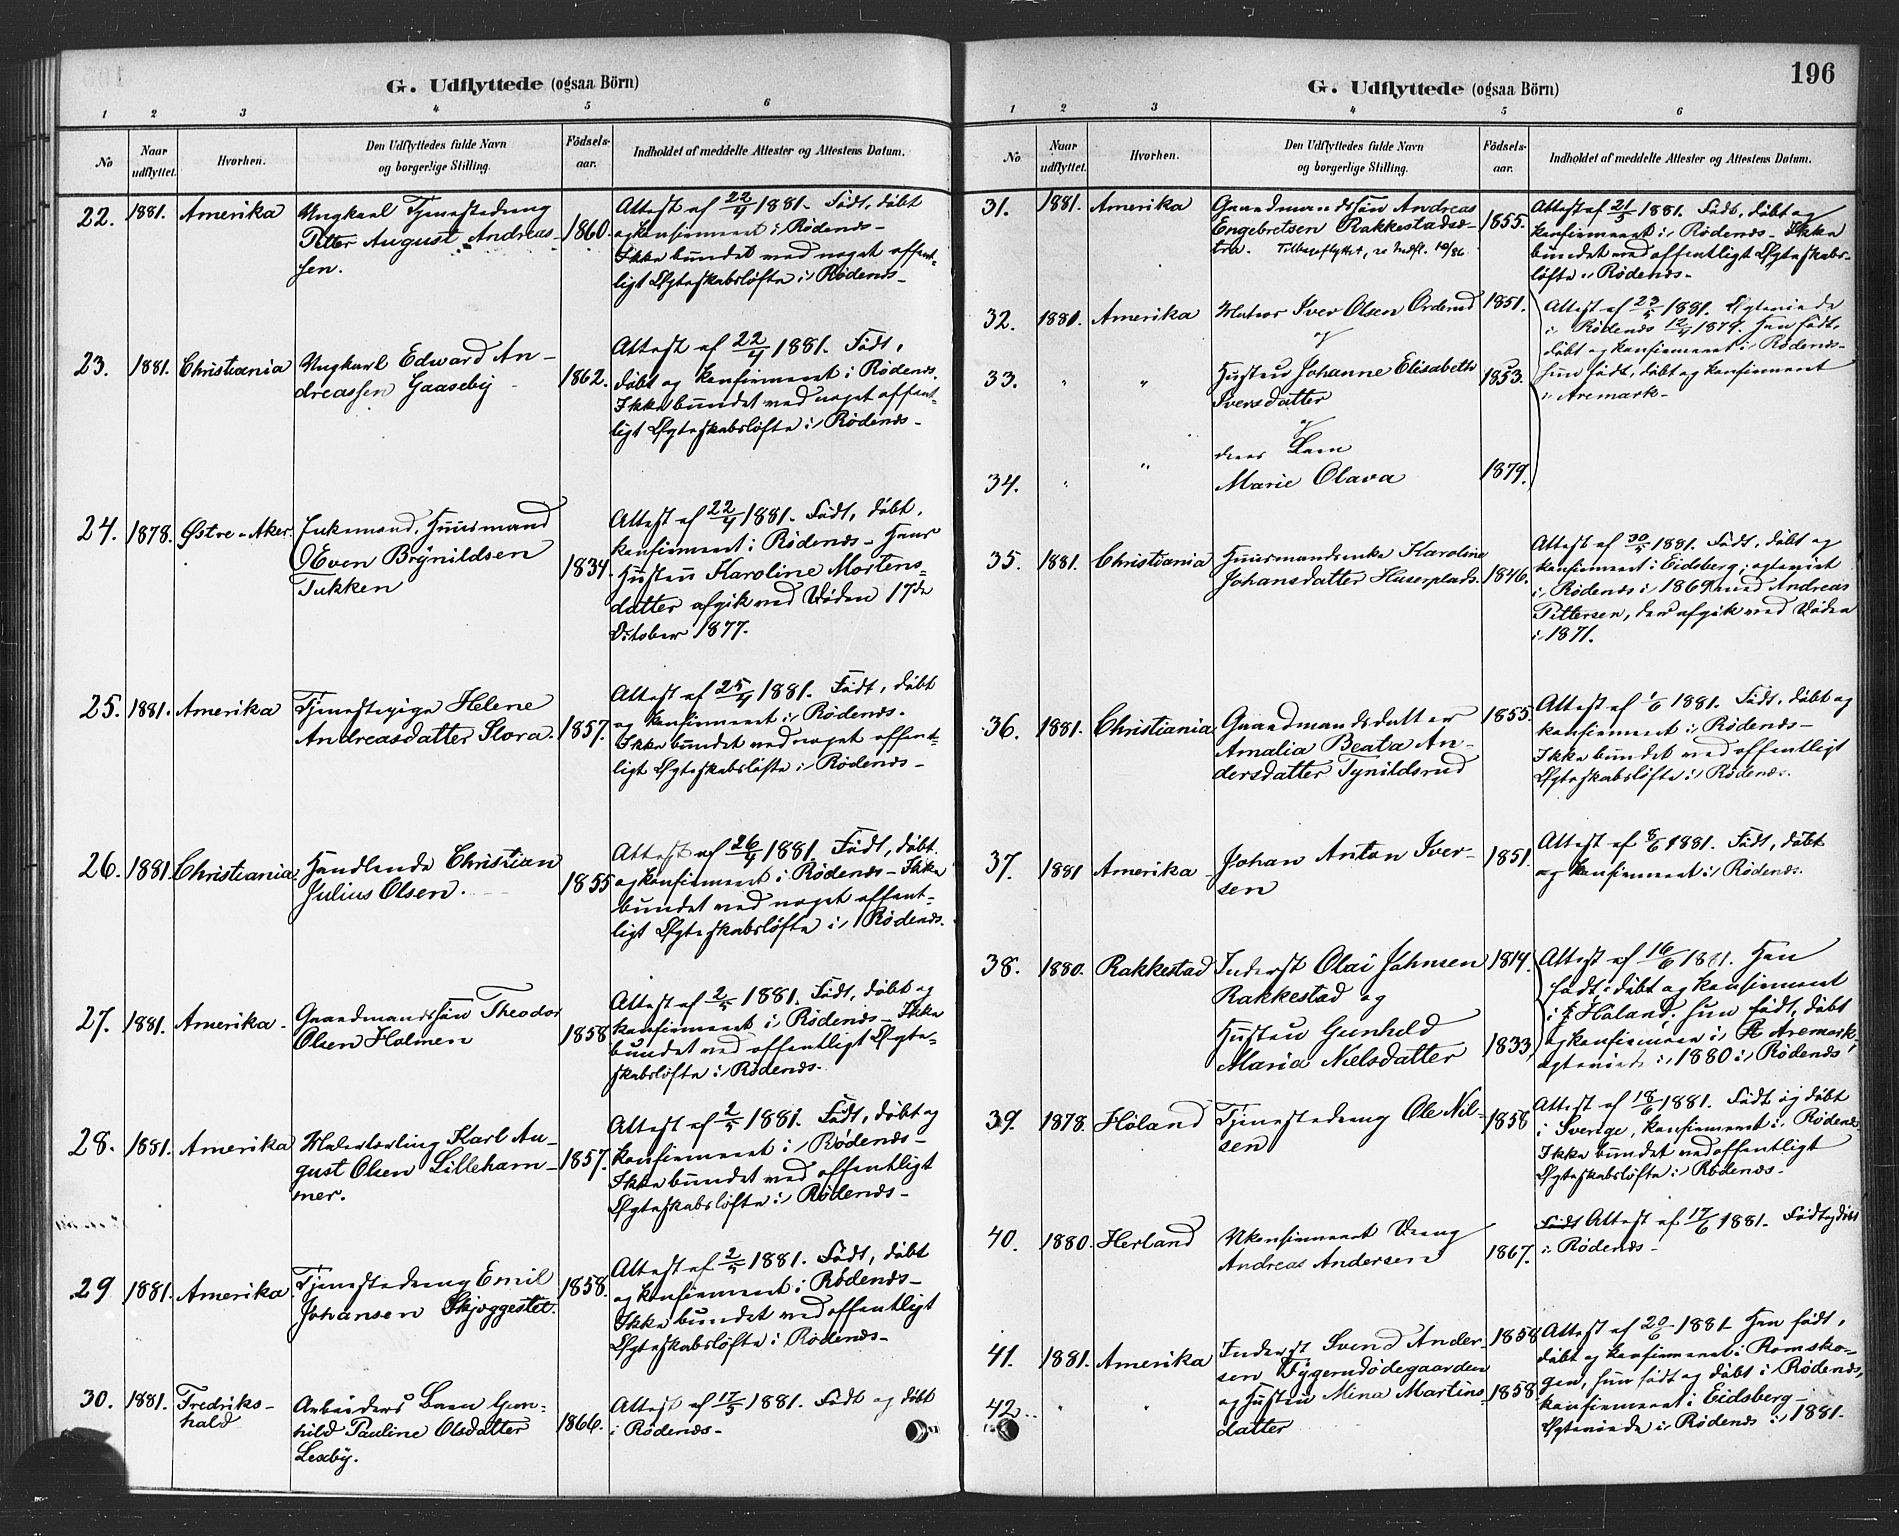 G. Udflyttede (ogsaa Börn)
1 2 3 4 5 6
No
Naar udflyttet.
Hvorhen.
Den Udflyttedes fulde Navn
og borgerlige Stilling.
Fødsels-
aar.
Indholdet af meddelte Attester og Attestens Datum.
22. 1881. Amerika
Ungkarl Tjenestedreng
Petter August Andreas-
sen.
1860.
Attest af 22/4 1881. Født, døbt
og konfirmeret i Rødenæs -
Ikke bundet ved noget offent-
ligt Ægteskabsløfte i Rødenæs -
23. 1881. Christiania
Ungkarl Edward An-
dreassen Gaaseby
1862.
Attest af 22/4 1881. Født,
døbt og konfirmeret i Rødenæs.
Ikke bundet ved noget offent-
ligt Ægteskabsløfte i Rødenæs -
24. 1878. Østre-Aker.
Enkemand, Huusmand
Even Brynildsen
Tukken
1834.
Attest af 22/4 1881. Født, døbt,
konfirmeret i Rødenæs - Hans
Hustru Karoline Mortens-
datter afgik ved Døden 17de
October 1877.
25. 1881. Amerika
Tjenestepige Helene
Andreasdatter Slora.
1857.
Attest af 25/4 1881. Født, døbt
og konfirmeret i Rødenæs.
Ikke bundet ved noget offent-
ligt Ægteskabsløfte i Rødenæs -
26. 1881. Christiania.
Handlende Christian
Julius Olsen.
1855
Attest af 26/4 1881. Født, døbt.
og konfirmeret i Rødenæs - Ikke
bundet ved noget offent-
ligt Ægteskabsløfte i Rødenæs.
27. 1881. Amerika -
Gaardmandssøn Theodor
Olsen Holmen
1858
Attest af 2/5 1881. Født, døbt og
konfirmeret i Rødenæs - Ikke
bundet ved offentligt Ægte-
skabsløfte i Rødenæs.
28. 1881. Amerika
Malerlærling Karl Au-
gust Olsen Lilleham-
mer.
1857.
Attest af 2/5 1881. Født, døbt og
konfirmeret i Rødenæs -
Ikke bundet ved offentligt
Ægteskabsløfte i Rødenæs -
29 1881. Amerika
Tjenestedreng Emil
Johansen Skjæggestet.
1858.
Attest af 2/5 1881. Født, døbt
og konfirmeret i Rødenæs -
Ikke bundet ved offentligt
Ægteskabsløfte i Rødenæs -
30. 1881. Fredriks-
hald
Arbeiders Barn Gun-
hild Pauline Olsdatter
Lexby.
1866.
Attest af 17/5 1881. Født og døbt
i Rødenæs -
196
G. Udflyttede (ogsaa Börn)
1 2 3 4 5 6
No
Naar udflyttet.
Hvorhen.
Den Udflyttedes fulde Navn
og borgerlige Stilling.
Fødsels-
aar.
Indholdet af meddelte Attester og Attestens Datum.
31. 1881. Amerika
Gaardmandssøn Andreas
Engebretsen Rakkestadsæ-
tra. Tilbageflyttet, se Indfl. 10/86
1855.
Attest af 21/5 1881. Født, døbt og
konfirmeret i Rødenæs - Ikke
bundet ved offentligt Ægteskabs-
løfte i Rødenæs -
32. 1881. Amerika
Iver Olsen Orderud
og
1851.
Attest af 23/5 1881. Ægteviede
i Rødenæs 12/4 1879. Han født,
døbt og konfirmeret i Rødenæs -
hun født, døbt og konfirmeret
i Aremark -
33. " "
Hustru Johanne Elisabeth
Iversdatter
og
1853.
34. " "
deres Barn
Marie Olava
1879.
35. 1881. Christiania
Huusmandsenke Karoline
Johansdatter Huserplads.
1846.
Attest af 30/5 1881. Født, døbt og
konfirmeret i Eidsberg; egteviet
i Rødenæs i 1869 med Andreas
Pettersen, der afgik ved Døden
i 1871.
36. 1881. Christiania
Gaardmandsdatter
Amalia Beata An-
dersdatter Tynildsrud
1855.
Attest af 1/6 1881. Født, døbt og
konfirmeret i Rødenæs -
Ikke bundet ved offentligt
Ægteskabsløfte i Rødenæs.
37. 1881 Amerika
Johan Anton Iver-
sen
1851.
Attest af 8/6 1881. Født, døbt
og konfirmeret i Rødenæs.
38. 1880. Rakkestad
Inderst Olai Johnsen
Rakkestad og
Hustru Gunhild
Maria Nielsdatter
1814.
1833.
Attest af 16/6 1881. Han
født, døbt og konfirmeret
i Høland; hun født, døbt
og konfirmeret i Aremark -
egteviede i 1880 i Rødenæs
39. 1878. Høland
Tjenestedreng Ole Nil-
sen
1858
Attest af 18/6 1881. Født og døbt
i Sverige, konfirmeret i Rødenæs
Ikke bundet ved offentligt
Ægteskabsløfte i Rødenæs -
40. 1880. Herland
Ukonfirmeret Dreng
Andreas Andersen
1867.
Født Attest af 17/6 1881. Født og døbt
i Rødenæs -
41. 1881. Amerika
Inderst Svend Ander-
sen Tyggemdødegaarden
1858
Attest af 20/6 1881 Han født,
døbt og konfirmeret i Romsko-
gen, hun født og døbt i Rødenæs,
konfirmeret i Eidsberg -
Ægteviede i Rødenæs i 1881.
42. " "
og Hustru Mina Martins-
datter
1858.